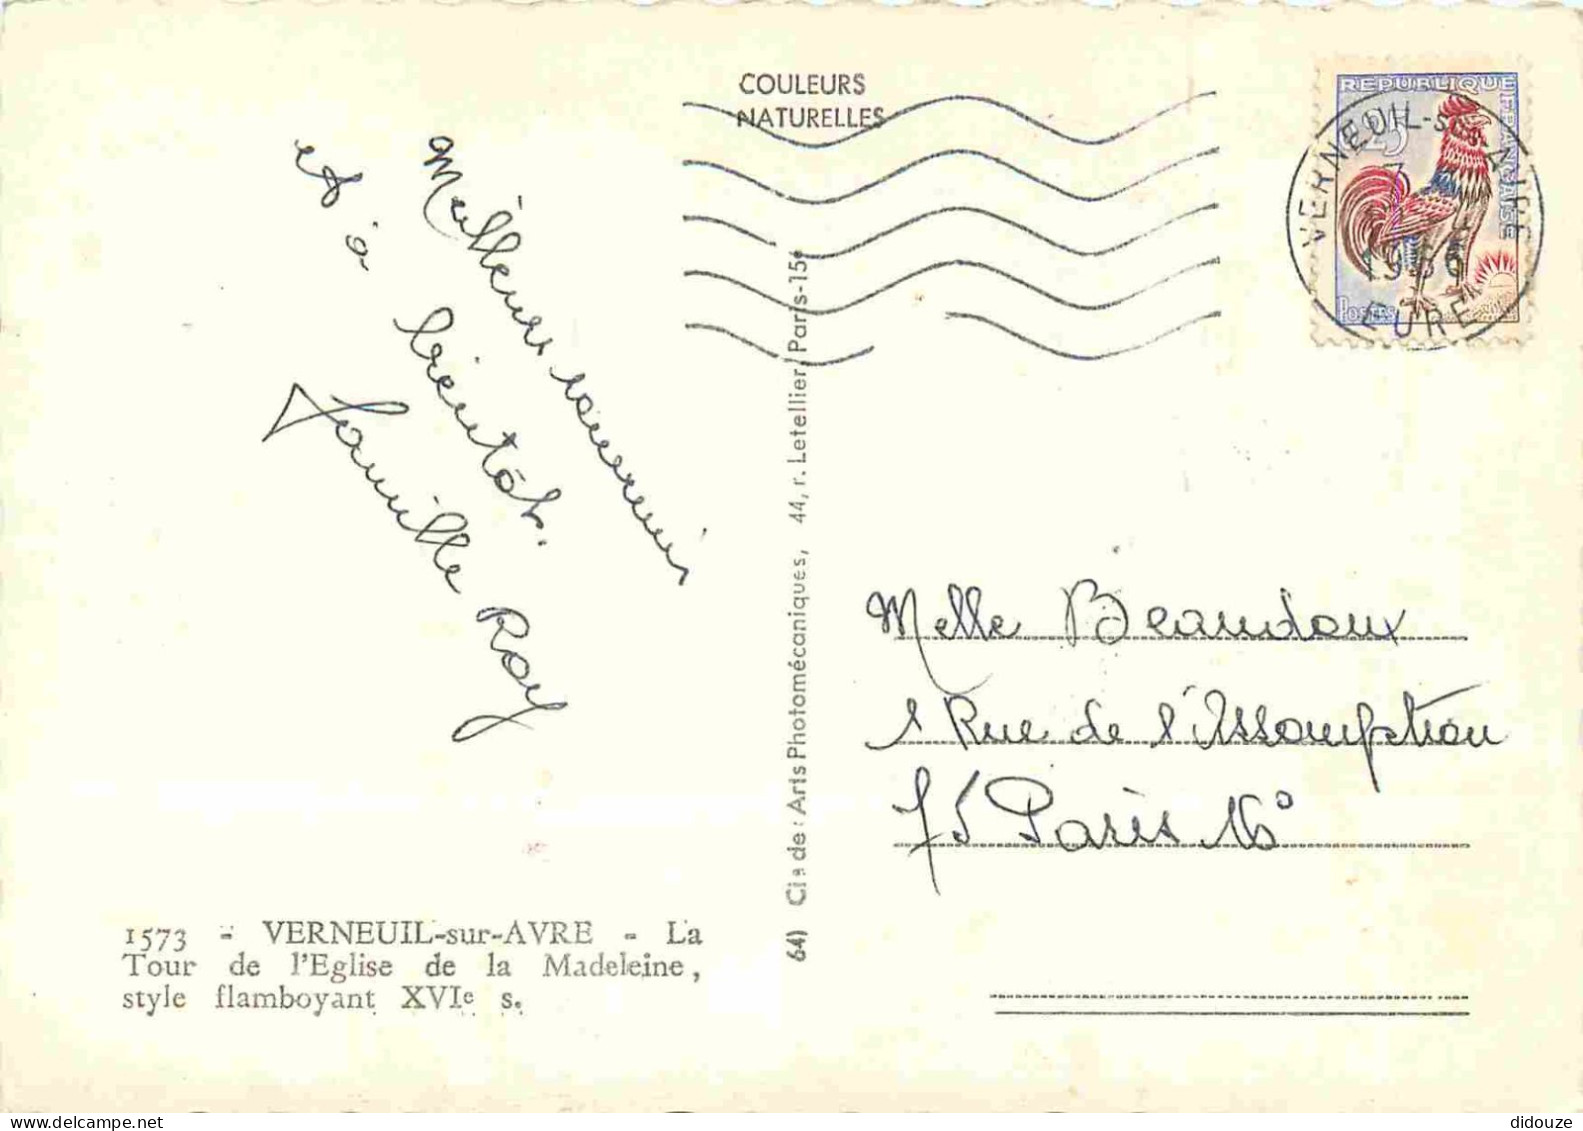 COULEURS
NATURELLES
REPUBLIQUE FRANÇAISE
POSTES
VERNEUIL-sur-AVRE
7
1966
EURE
Meilleurs souvenirs
et à bientôt.
Famille Roy
64) Cie de: Arts Photomécaniques, 44, r. Letellier, Paris-15e
Melle Beaudoux
1 Rue de l'Assomption
75 Paris 16°
1573 - VERNEUIL-sur-AVRE - La
Tour de l'Eglise de la Madeleine,
style flamboyant XVIe s.
didouze